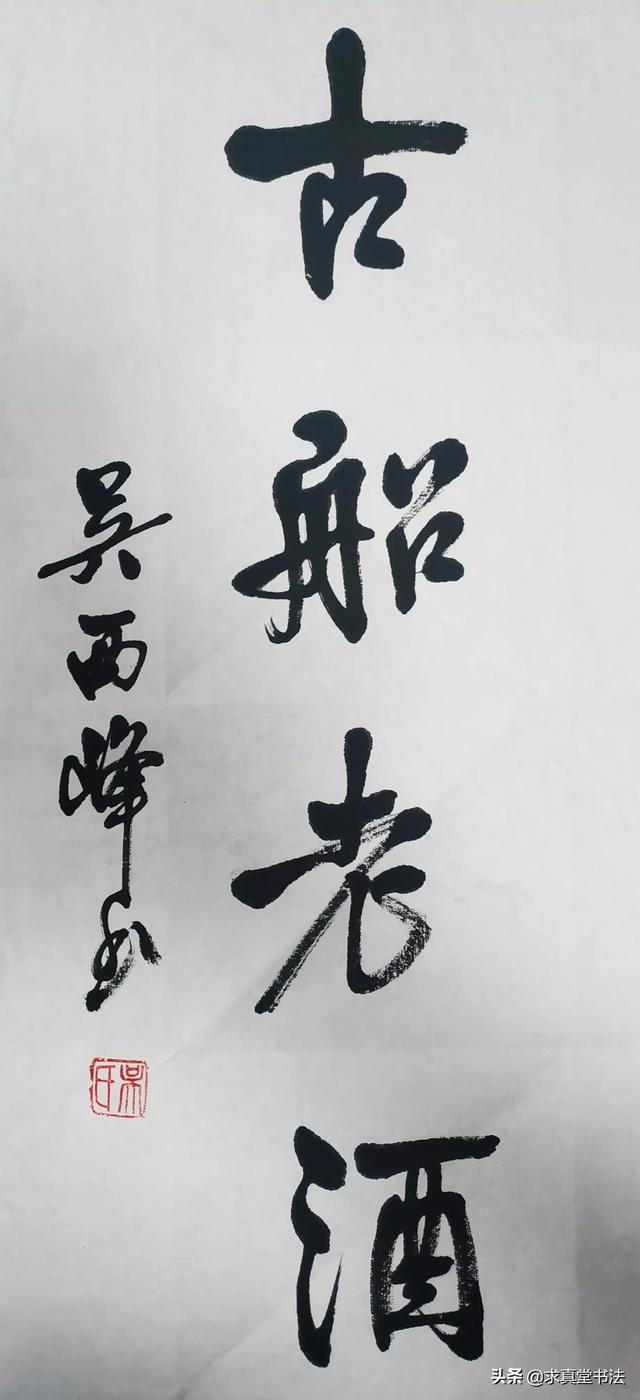 古船老酒
吴西峰书
吴氏
头条 @求真堂书法